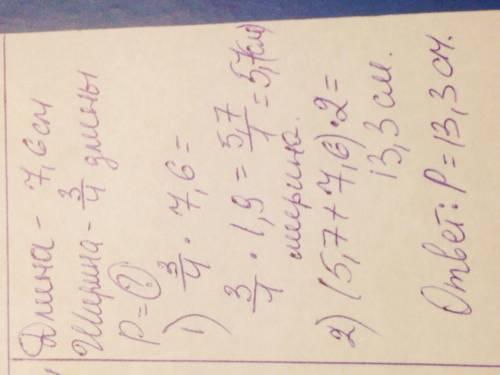 Длина - 7,6 см
Ширина - 3/4 длины
P = ?
1) 3/4 · 7,6 =
3/4 · 1,9 = 5,7/1 = 5,7 (см)
ширина.
2) (5,7 + 7,6) · 2 =
13,3 см.
Ответ: P = 13,3 см.